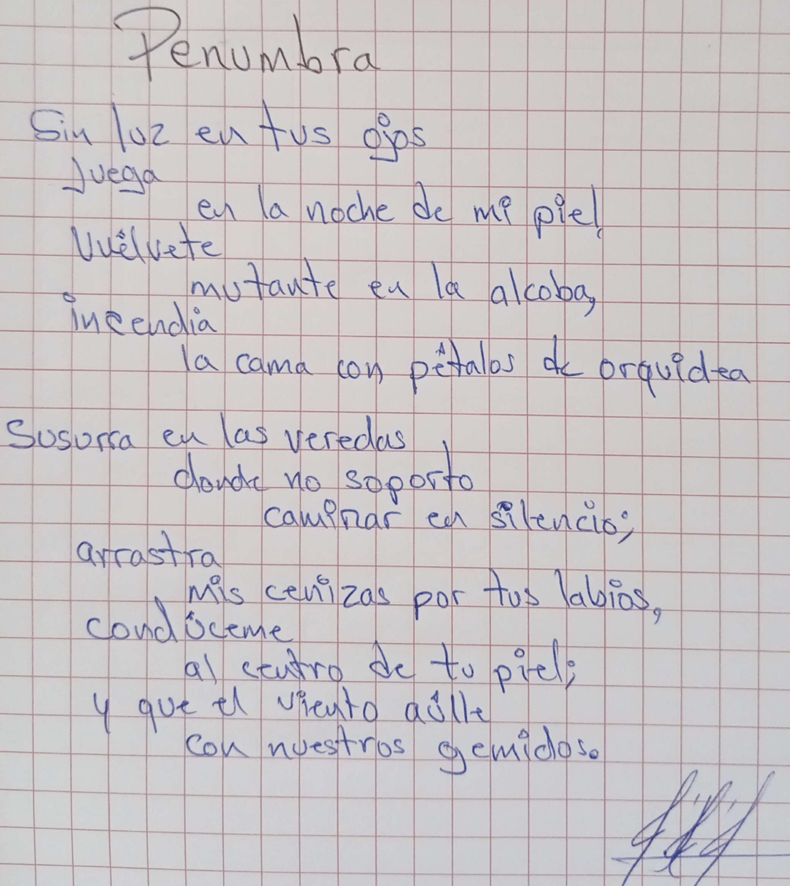 Penumbra
Sin luz en tus ojos
Juega
en la noche de mi piel,
Vuélvete
mutante en la alcoba,
incendia
la cama con pétalos de orquídea
Susurra en las veredas
donde no soporto
caminar en silencio;
arrastra
mis cenizas por tus labios,
condúceme
al centro de tu piel;
y que el viento aúlle
con nuestros gemidos.